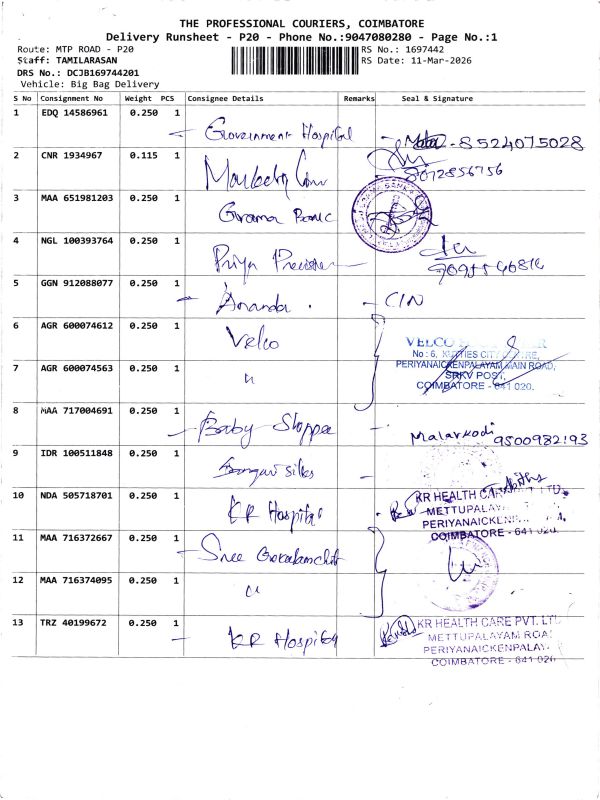 THE PROFESSIONAL COURIERS, COIMBATORE
Delivery Runsheet - P20 - Phone No.:9047080280 - Page No.:1
Route: MTP ROAD - P20
RS No.: 1697442
Staff: TAMILARASAN
RS Date: 11-Mar-2026
DRS No.: DCJB169744201
Vehicle: Big Bag Delivery
S No Consignment No Weight PCS Consignee Details Remarks Seal & Signature
1 EDQ 14586961 0.250 1 Government Hospital 8524075028
2 CNR 1934967 0.115 1 8072856756
3 MAA 651981203 0.250 1
4 NGL 100393764 0.250 1 Priya
5 GGN 912088077 0.250 1 Ananda
6 AGR 600074612 0.250 1 Velco
VELCO
No: 6, CITY
PERIYANAICKENPALAYAM MAIN ROAD,
SRKV POST,
COIMBATORE - 641 020.
7 AGR 600074563 0.250 1 "
8 MAA 717004691 0.250 1 Baby Shoppee Malarkodi 9500982193
9 IDR 100511848 0.250 1 Silks
10 NDA 505718701 0.250 1 KR Hospital
KR HEALTH CARE LTD.
METTUPALAYAM
COIMBATORE - 641 020.
11 MAA 716372667 0.250 1 Sree
12 MAA 716374095 0.250 1 "
13 TRZ 40199672 0.250 1 KR Hospital
KR HEALTH CARE PVT. LTD
METTUPALAYAM ROA
PERIYANAICKENPALAY
COIMBATORE - 641 020